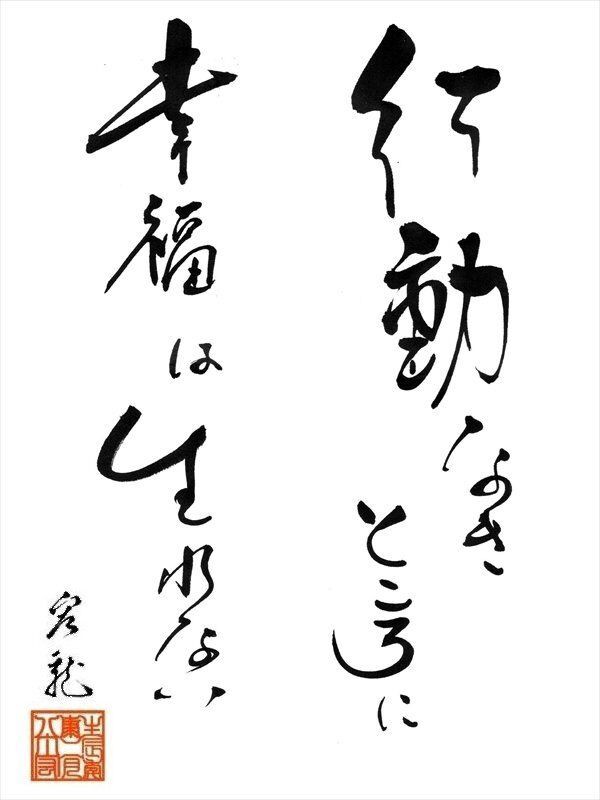 行動なき
ところに
幸福は生れない